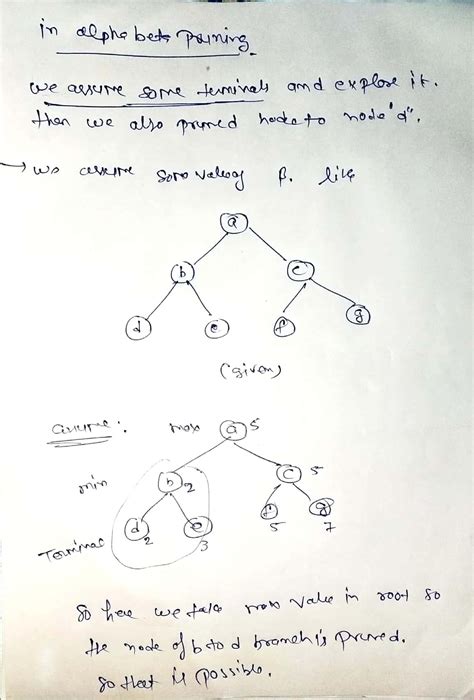 in alpha beta pruning.
we assume some terminals and explore it.
then we also pruned node to node "d".
→ we assume some value of β. like
a
b c
d e f g
(given)
assume: max a 5
min b 2 c 5
Terminal d 2 e 3 f 5 g 7
So here we take max value in root so
the node of b to d branch is pruned.
So that is possible.